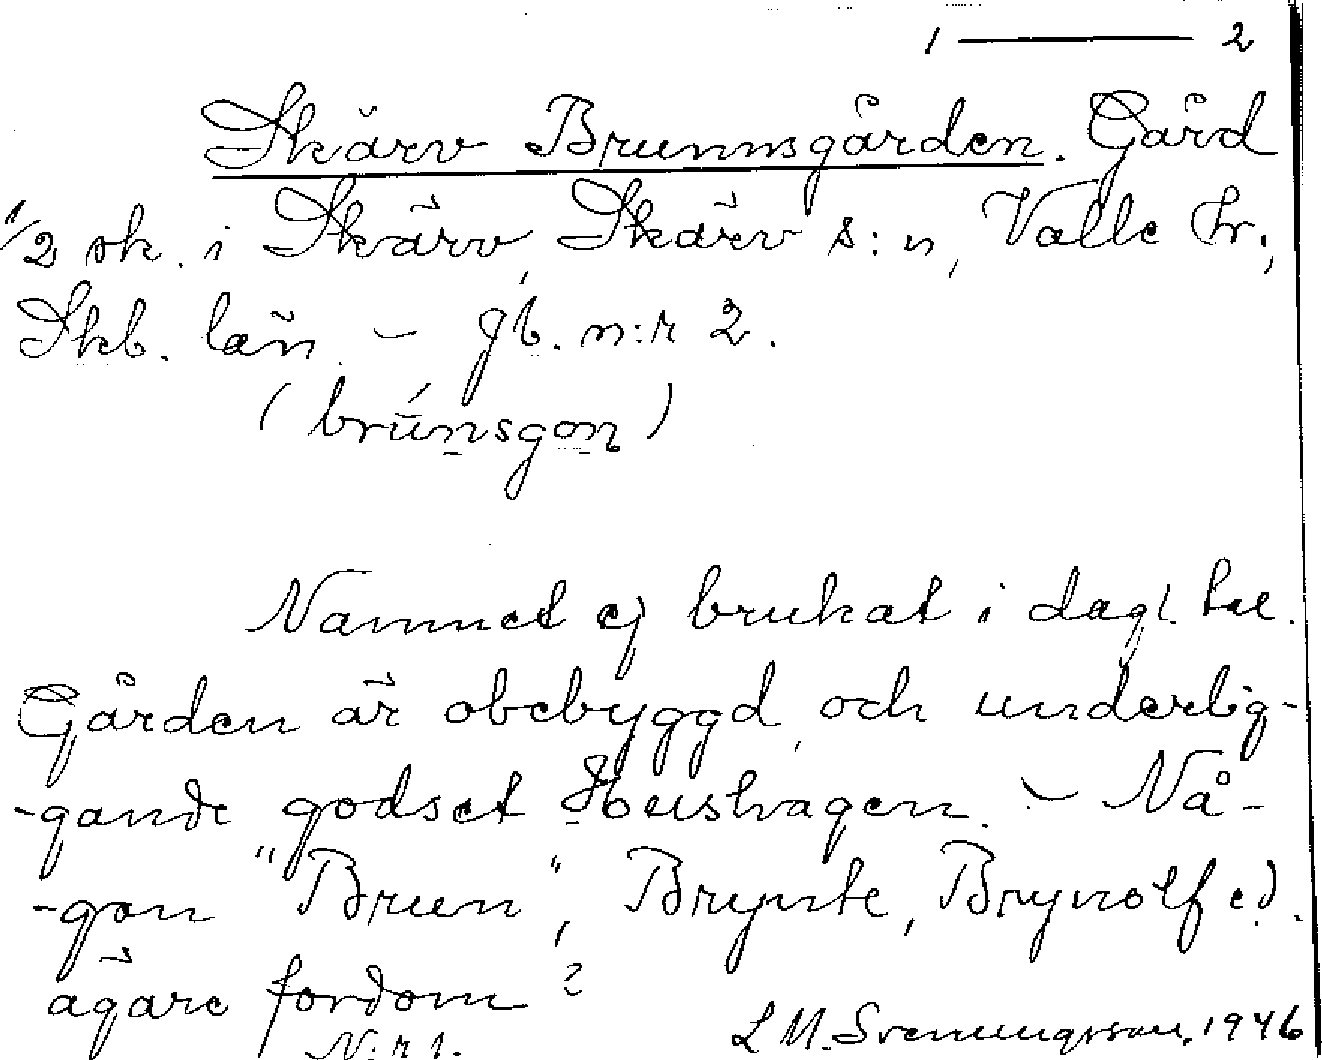 1 — 2
Skärv Brunnsgården. Gård
1/2 sk. i Skärv, Skärv s:n, Valle hr.,
Skb. län. – gb. n:r 2.
(brúnsgon)
Namnet ej brukat i dagl. tal.
Gården är obebyggd, och underlig-
-gande godset Höjshagen. – Nå-
-gon "Brun", Brynte, Brynolf ed.
ägare fordom?
N:r 1.
L M. Svenungsson. 1946